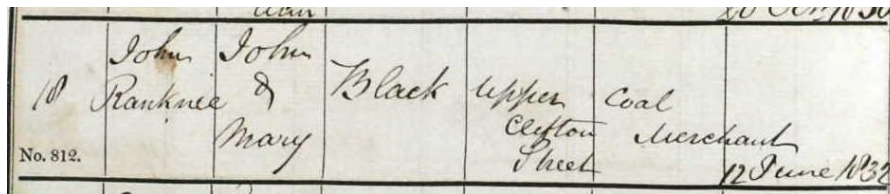 18
John
Ranknee
John
&
Mary
Black
Upper
Clifton
Street
Coal
Merchant
No. 812.
12 June 183